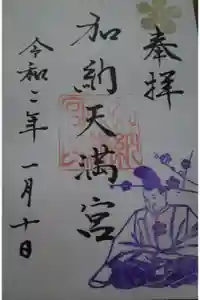 奉拝
加納天満宮
令和二年一月十日